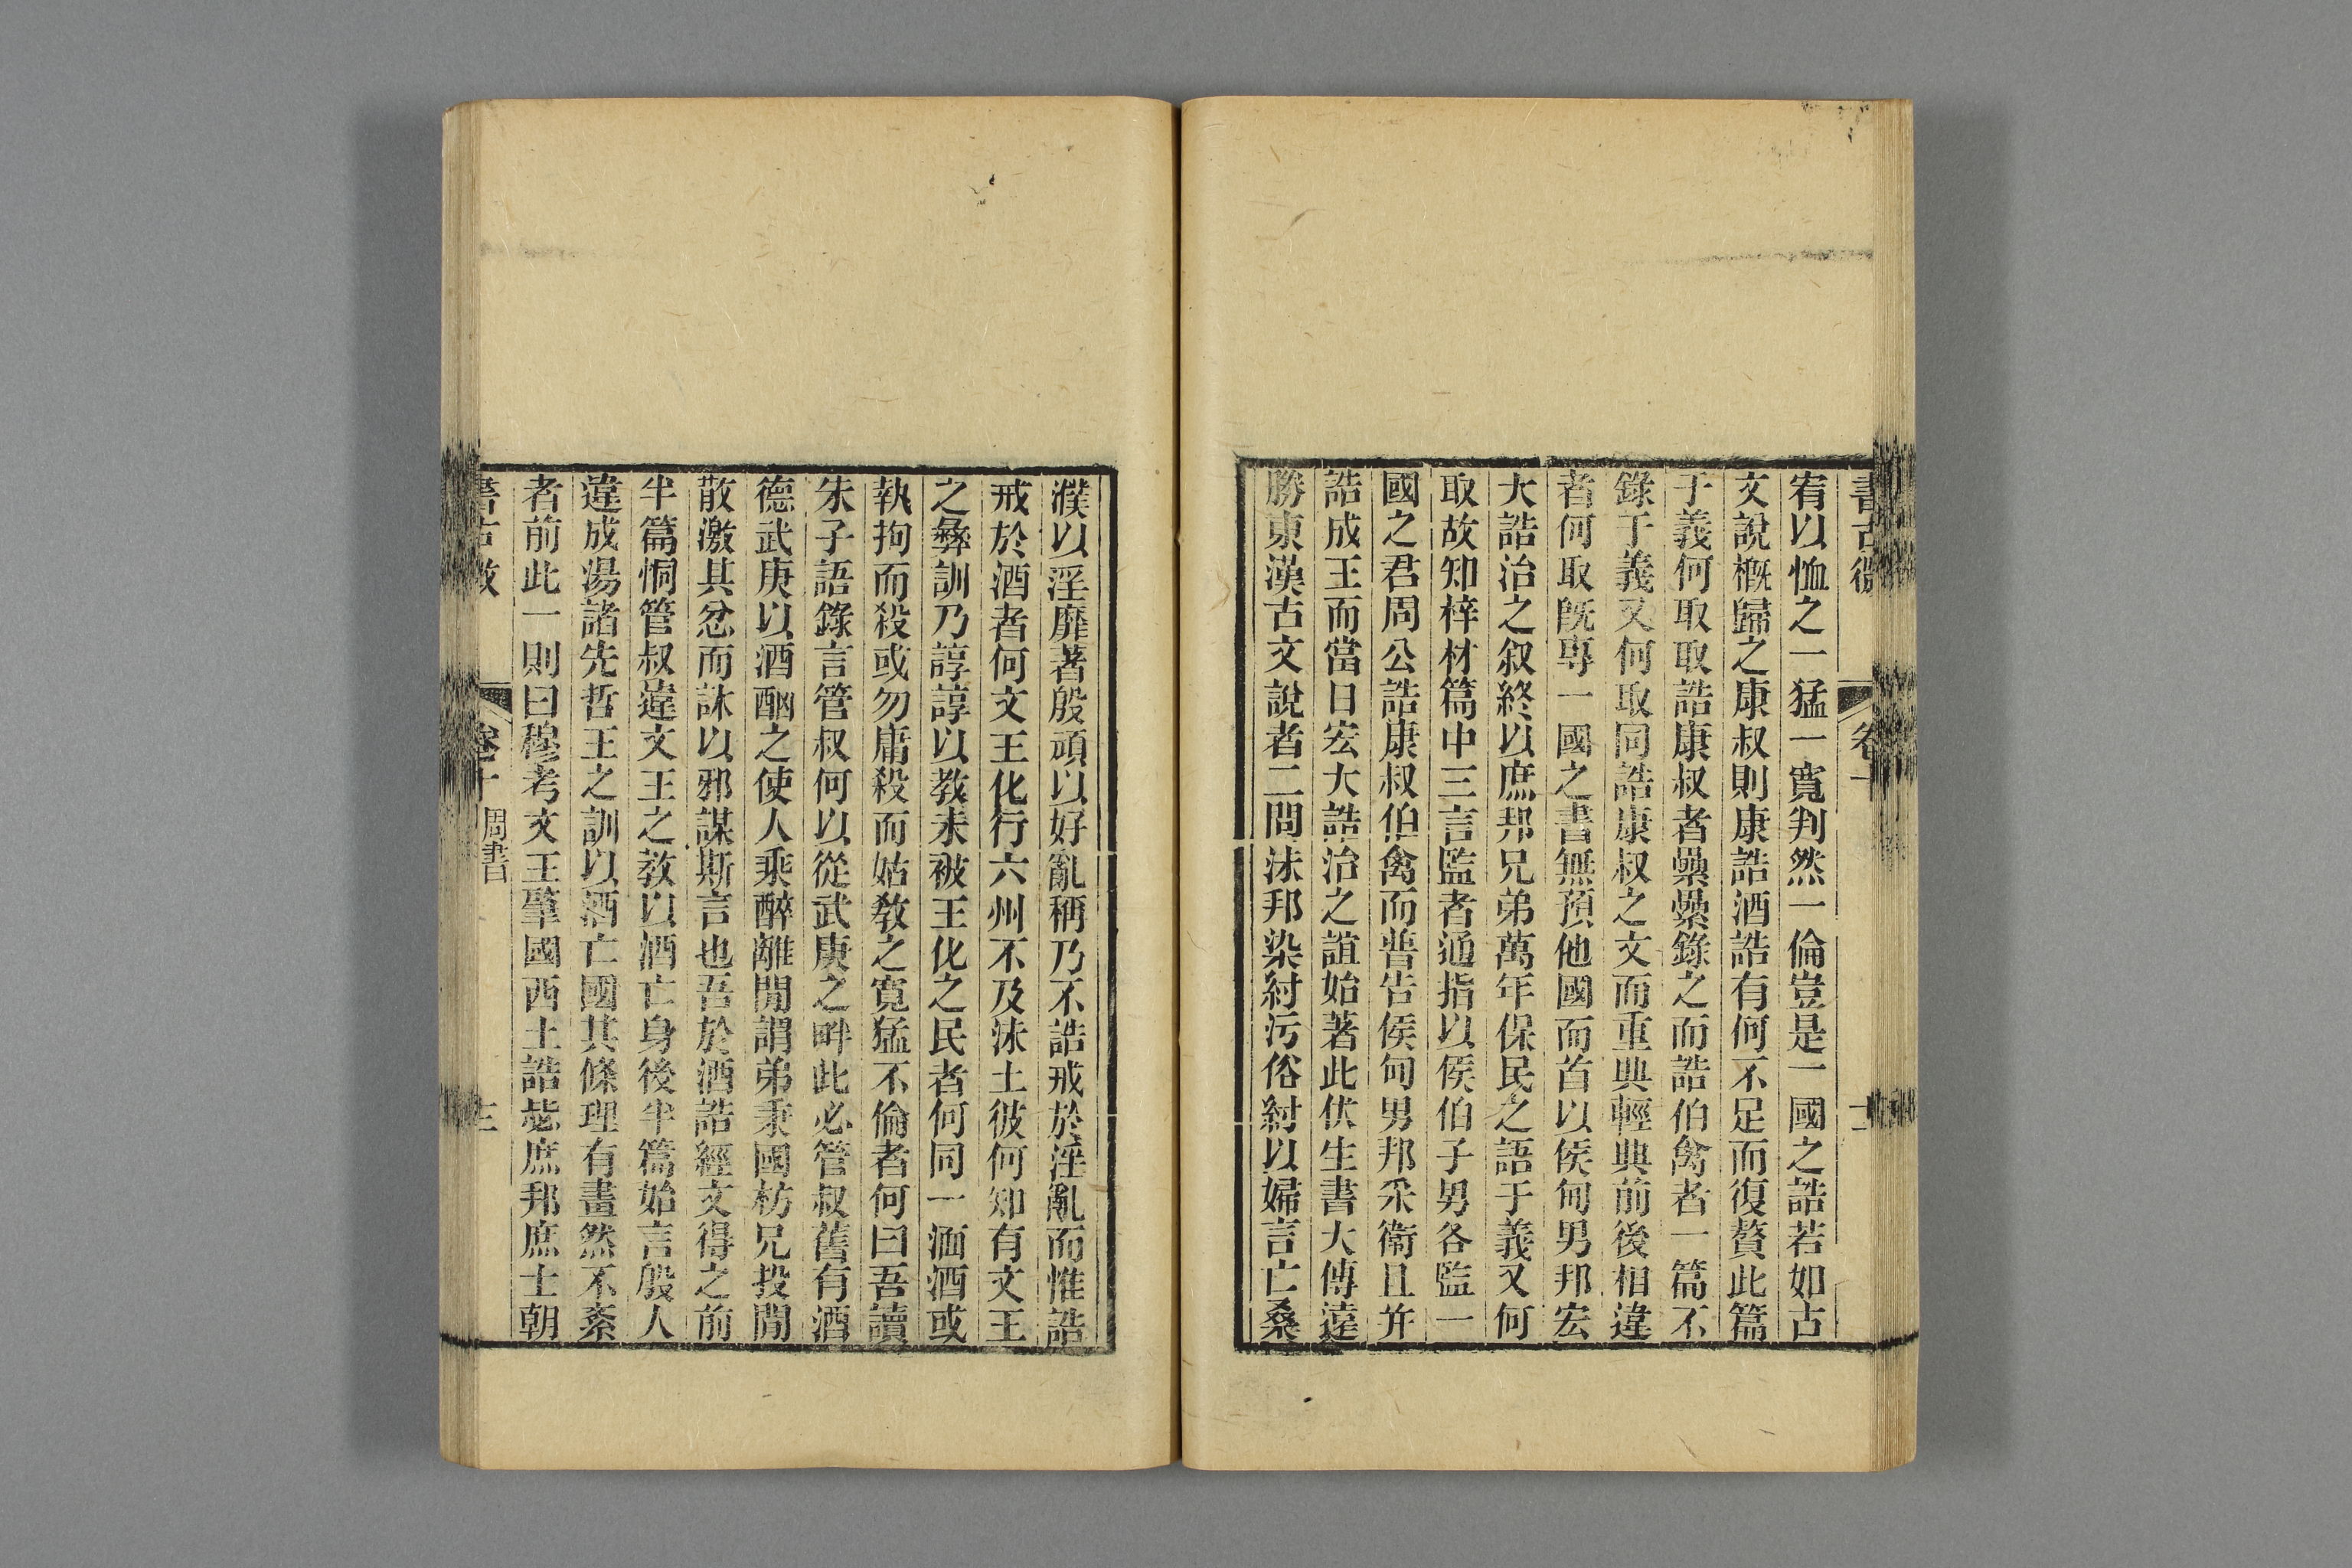 書古微 卷十
宥以恤之一猛一寬判然一倫豈是一國之誥若如古
文說槪歸之康叔則康誥酒誥有何不足而復贅此篇
于義何取取誥康叔者纍纍錄之而誥伯禽者一篇不
錄于義又何取同誥康叔之文而重典輕典前後相違
者何取旣專一國之書無預他國而首以侯甸男邦宏
大誥治之叙終以庶邦兄弟萬年保民之語于義又何
取故知梓材篇中三言監者通指以侯伯子男各監一
國之君周公誥康叔伯禽而普告侯甸男邦釆衞且幷
誥成王而當日宏大誥治之誼始著此伏生書大傳遠
勝東漢古文說者二問沬邦染紂污俗紂以婦言亡桑
濮以淫靡著殷頑以好亂稱乃不誥戒於淫亂而惟誥
戒於酒者何文王化行六州不及沬土彼何知有文王
之彝訓乃諄諄以教未被王化之民者何同一湎酒或
執拘而殺或勿庸殺而姑敎之寬猛不倫者何曰吾讀
朱子語錄言管叔何以從武庚之畔此必管叔舊有酒
德武庚以酒酗之使人乘醉離閒謂弟秉國枋兄投閒
散激其忿而訹以邪謀斯言也吾於酒誥經文得之前
半篇恫管叔違文王之敎以酒亡身後半篇始言殷人
違成湯諸先哲王之訓以酒亡國其條理有畫然不紊
者前此一則曰穆考文王肇國西土誥毖庶邦庶士朝
卷十 周書